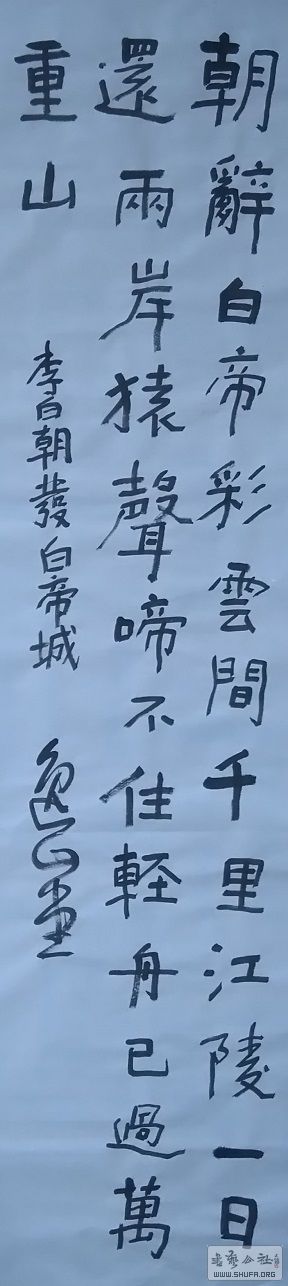 朝辭白帝彩雲間千里江陵一日
還兩岸猿聲啼不住軽舟已過萬
重山
李白朝發白帝城
書
WWW.SHUFA.ORG